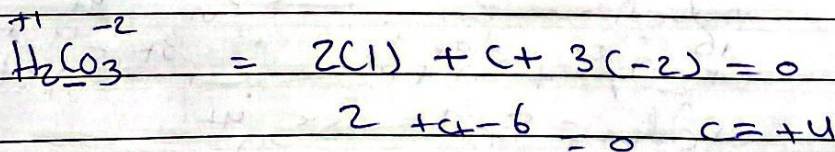 +1 -2
H₂CO₃ = 2(1) + C + 3(-2) = 0
2 + C - 6 = 0 C = +4